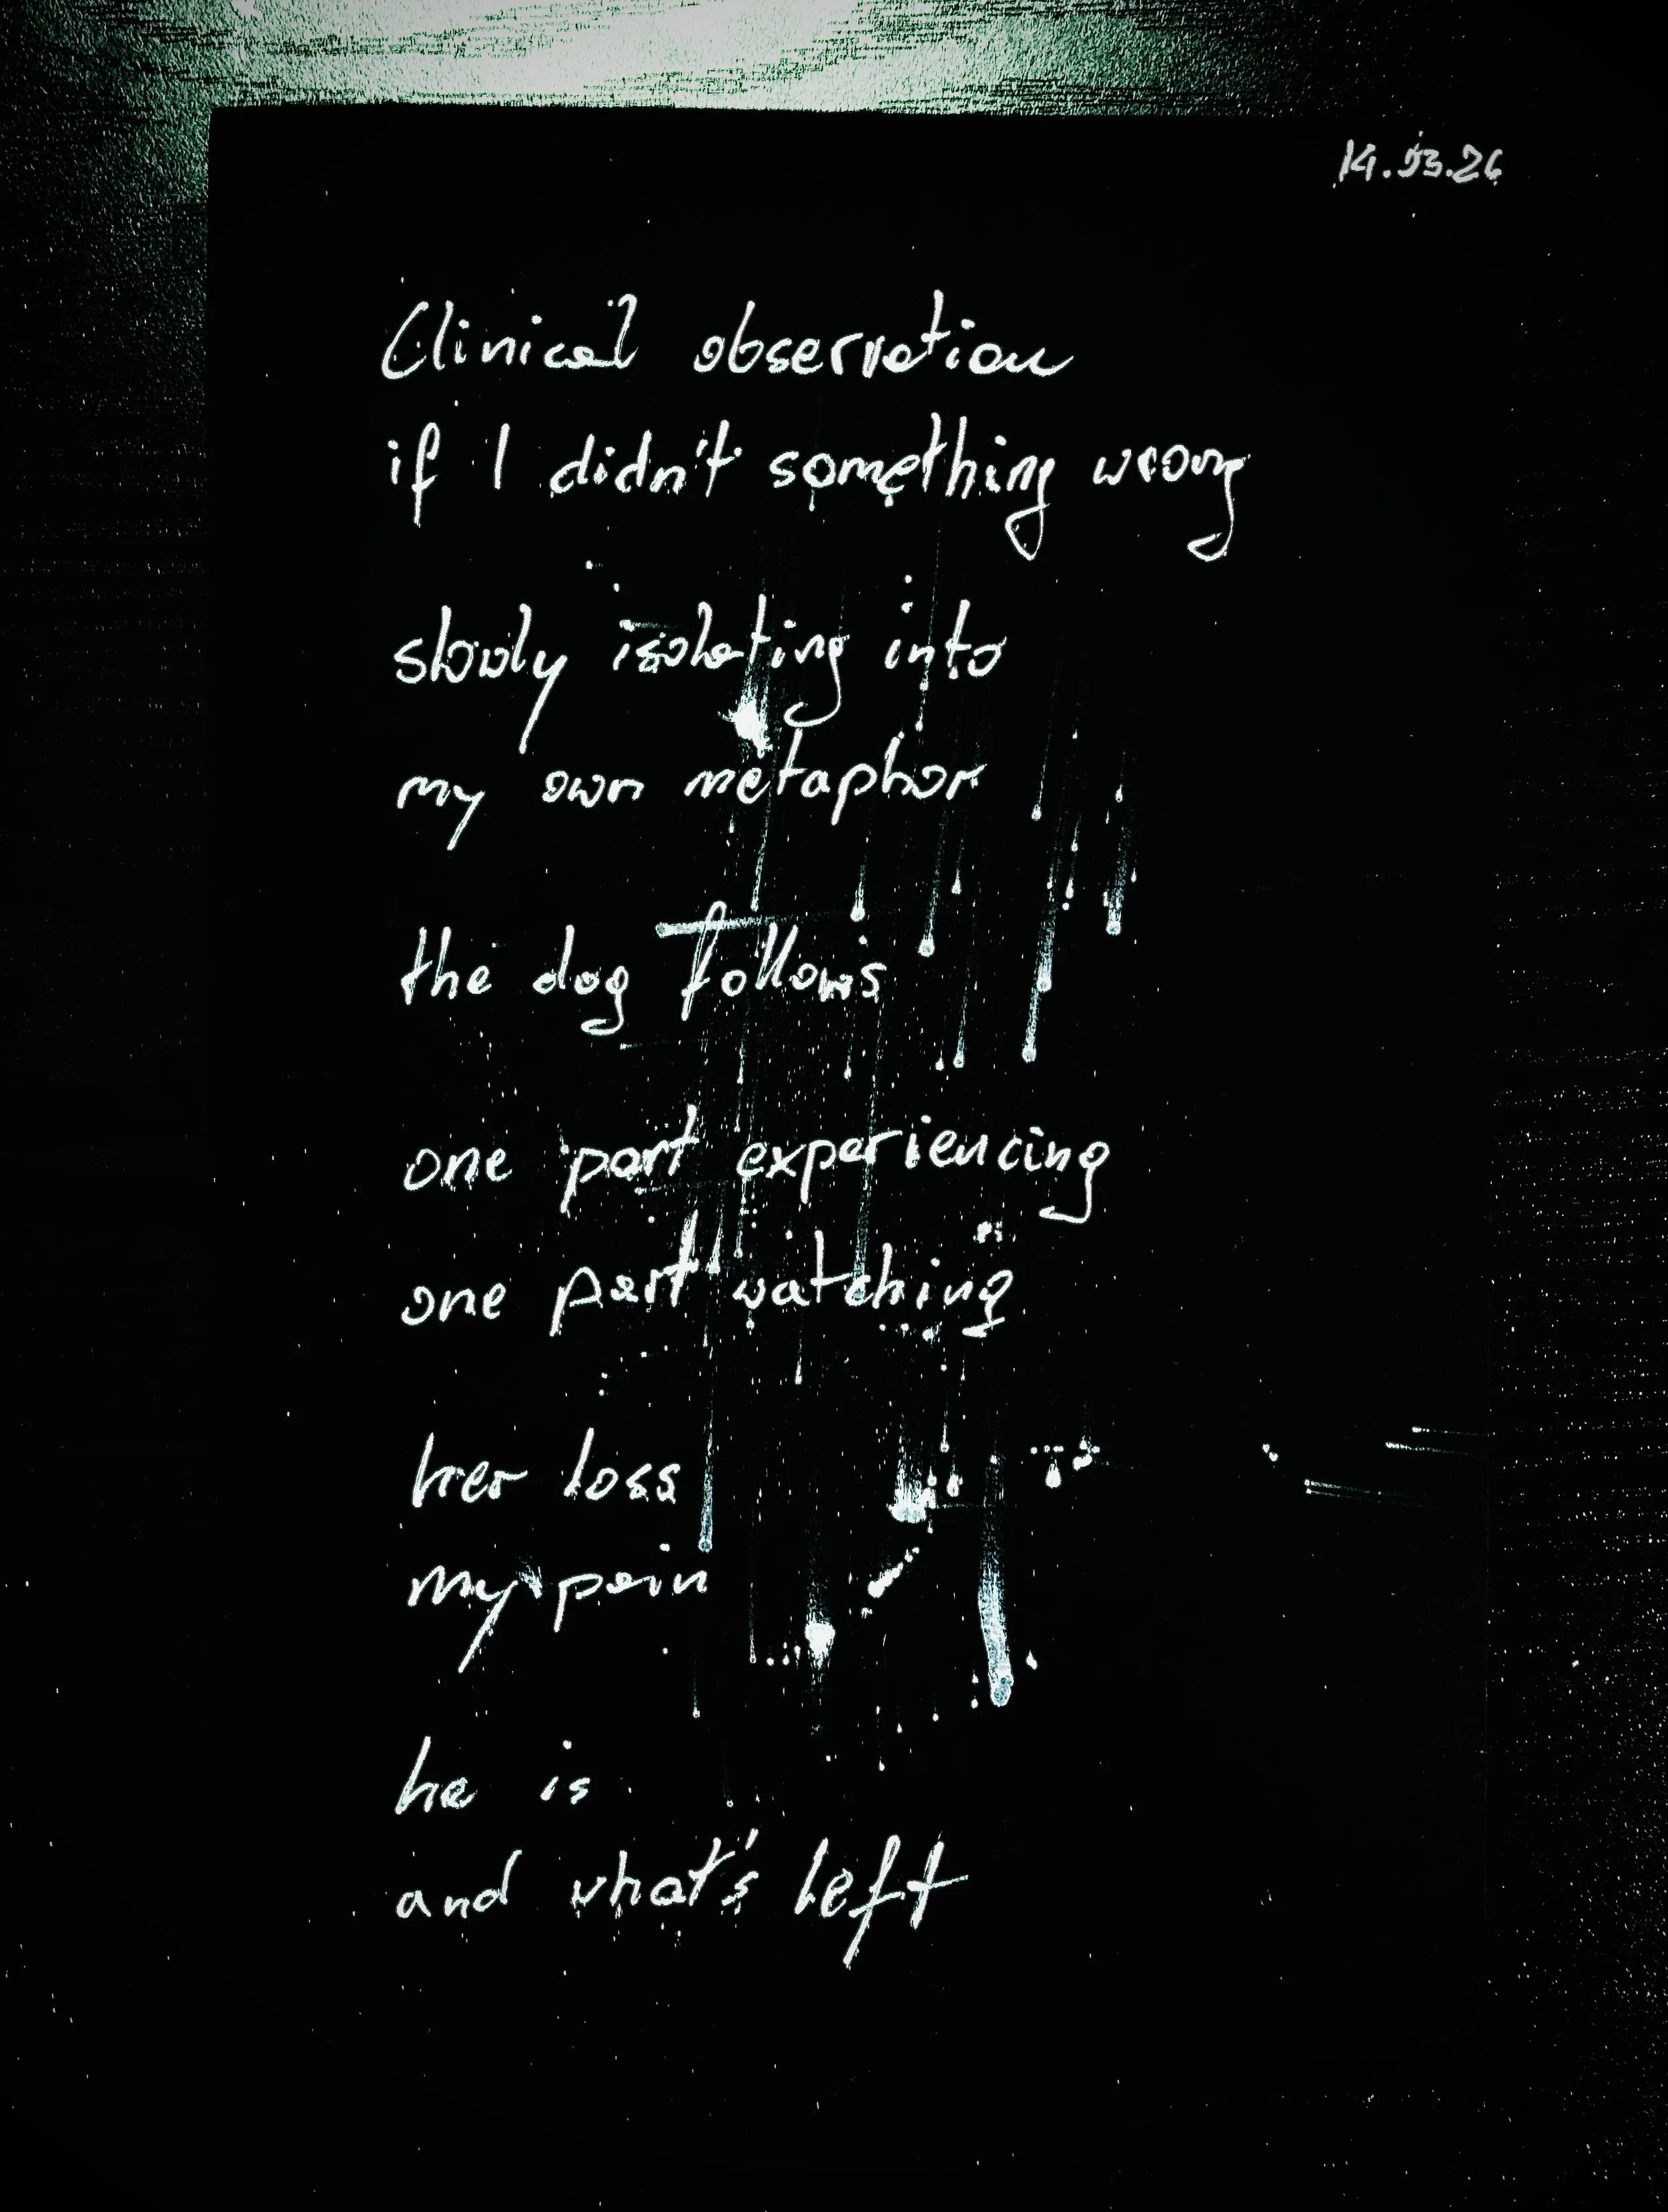 14.03.26
Clinical observation
if I didn't something wrong
slowly isolating into
my own metaphor
the dog follows
one part experiencing
one part watching
her loss
my pain
he is
and what's left